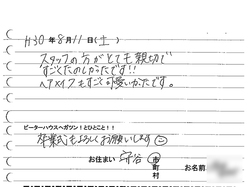 H30年8月11日(土)
スタッフの方がとても親切で
すごくたのしかったです!!
ヘアメイクもすごく可愛いかったです。
ピーターハウスへガツン!とひとこと!!
卒業式もよろしくお願いします
お住まい 守谷 市町村 お名前